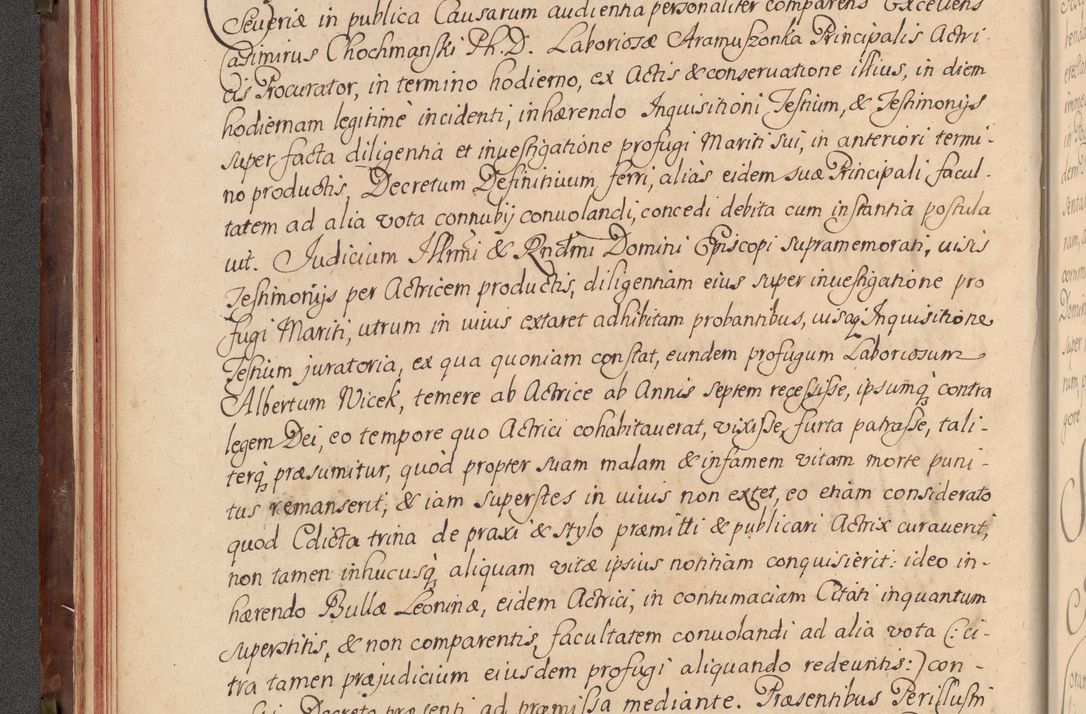 Severiæ in publica Causarum audientia personaliter comparens Excellens
Casimirus Chochmański Ph.D. Laboriosæ Aramuszonka Principalis Actri-
cis Procurator, in termino hodierno, ex Actis & conservatione illius, in diem
hodiernam legitimè incidenti, inhærendo Inquisitioni Testium, & Testimonijs
super facta diligentia et investigatione profugi Mariti sui, in anteriori termi-
no productis, Decretum Definitivum ferri, alias eidem suæ Principali facul-
tatem ad alia vota connubij convolandi, concedi debita cum instantia postula
vit. Judicium Illrmi & Rndmi Domini Episcopi supramemorati, visis
Testimonijs per Actricem productis, diligentiam eius super investigatione pro
fugi Mariti, utrum in vivis extaret adhibitam probantibus, visaq Inquisitione
Testium juratoria, ex qua quoniam constat, eundem profugum Laboriosum
Albertum Wicek, temere ab Actrice ab Annis septem recessisse, ipsumq contra
legem Dei, eo tempore quo Actrici cohabitaverat, vixisse, furta patrasse, tali-
terq præsumitur, quod propter suam malam & infamem vitam morte puni-
tus remanserit, & iam superstes in vivis non extet, eo etiam considerato
quod Edicta trina de praxi & stylo præmitti & publicari Actrix curaverit,
non tamen inhucusq aliquam vitæ ipsius notitiam conquisierit: ideo in-
hærendo Bullæ Leoninæ, eidem Actrici, in contumaciam Citati inquantum
superstitis, & non comparentis, facultatem convolandi ad alia vota (: ci-
tra tamen præjudicium eiusdem profugi aliquando redeuntis:) con-
Decreto præsenti ad præmissa mediante. Præsentibus Perillustri